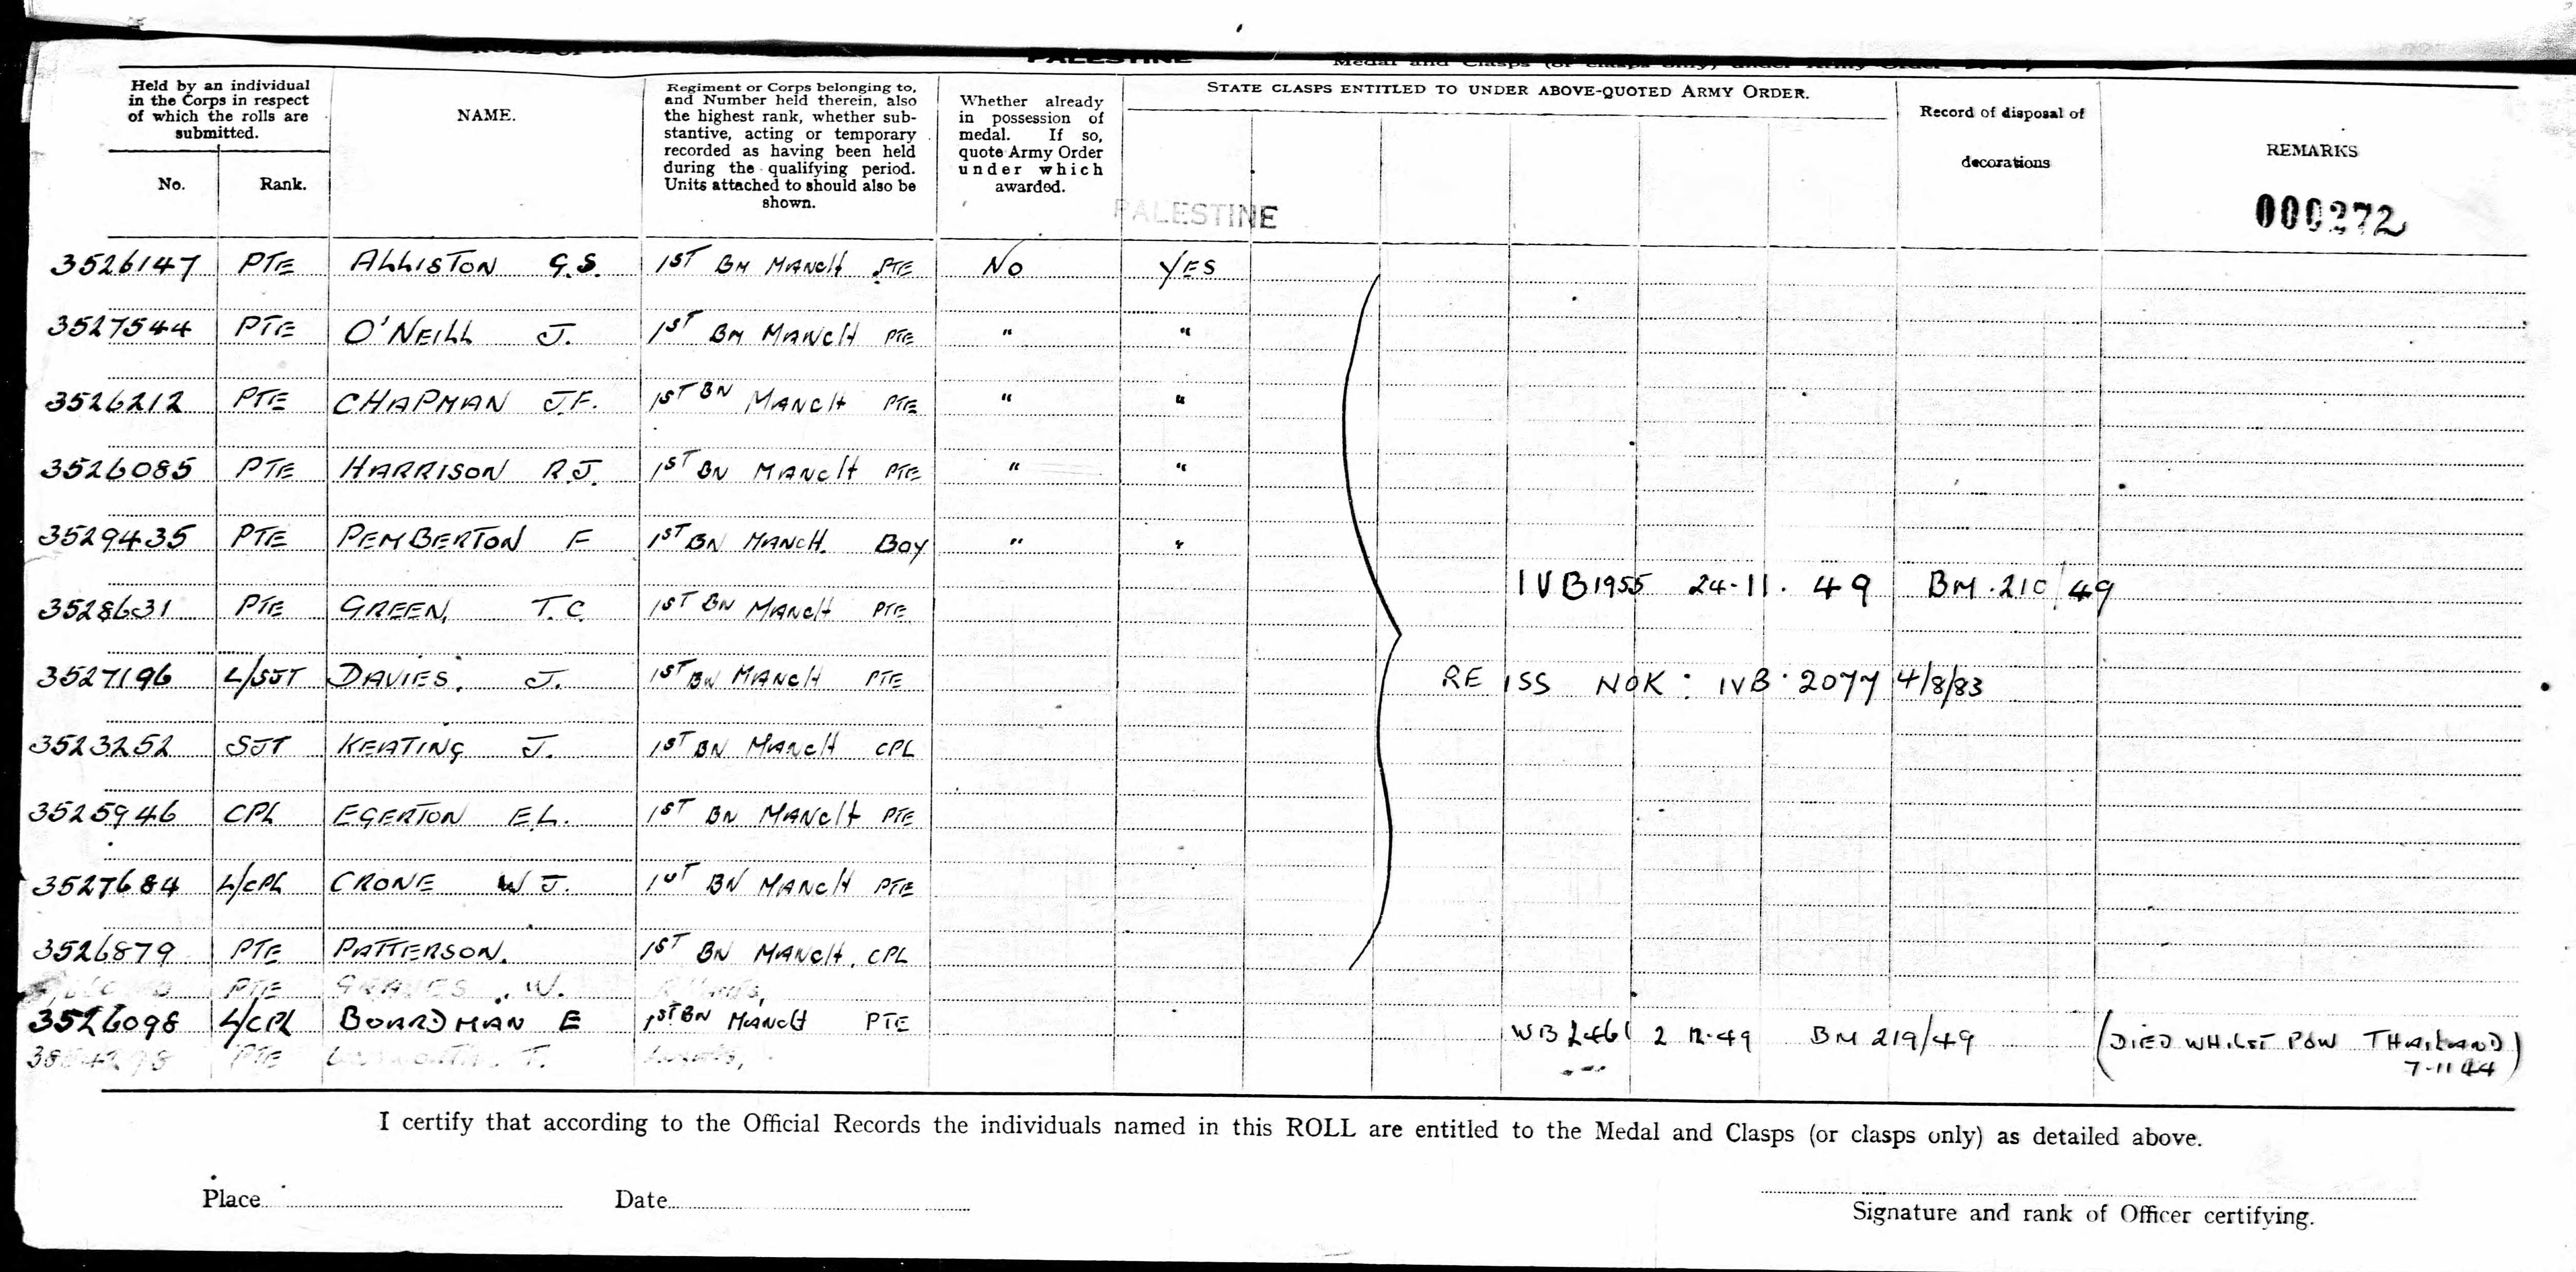 PALESTINE
Held by an individual in the Corps in respect of which the rolls are submitted.
No.
Rank.
NAME.
Regiment or Corps belonging to, and Number held therein, also the highest rank, whether substantive, acting or temporary recorded as having been held during the qualifying period. Units attached to should also be shown.
Whether already in possession of medal. If so, quote Army Order under which awarded.
STATE CLASPS ENTITLED TO UNDER ABOVE-QUOTED ARMY ORDER.
PALESTINE
Record of disposal of decorations
REMARKS
000272
3526147 PTE ALLISTON G.S. 1ST BN MANCH PTE NO YES
3527544 PTE O'NEILL J. 1ST BN MANCH PTE " "
3526212 PTE CHAPMAN J.F. 1ST BN MANCH PTE " "
3526085 PTE HARRISON R.J. 1ST BN MANCH PTE " "
3529435 PTE PEMBERTON F 1ST BN MANCH. BOY " "
IVB1955 24-11.49 BM.210/49
3528631 PTE GREEN, T.C. 1ST BN MANCH PTE
3527196 L/SJT DAVIES. J. 1ST BN MANCH PTE RE ISS NOK: IVB.2077 4/8/83
3523252 SJT KEATING J. 1ST BN MANCH CPL
3525946 CPL EGERTON E.L. 1ST BN MANCH PTE
3527684 L/CPL CRONE W J. 1ST BN MANCH PTE
3526879 PTE PATTERSON. 1ST BN MANCH. CPL
PTE GRAVES. W.
3526098 L/CPL BOARDMAN E 1ST BN MANCH PTE 2 12.49 BM 219/49 (DIED WHILST POW THAILAND)
7-11 44
PTE T.
I certify that according to the Official Records the individuals named in this ROLL are entitled to the Medal and Clasps (or clasps only) as detailed above.
Place
Date
Signature and rank of Officer certifying.